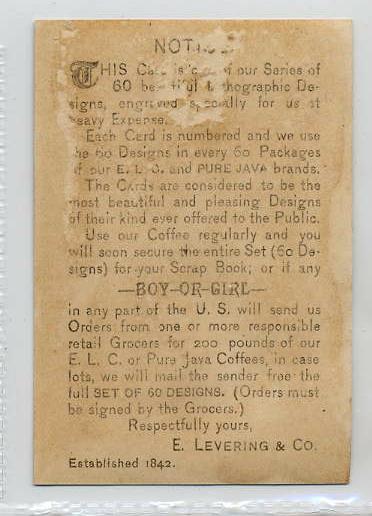 THIS is our Series of
60 Lithographic De-
signs, engraved specially for us at
heavy Expense.
Each Card is numbered and we use
the 60 Designs in every 60 Packages
of our E. L. C. and PURE JAVA brands.
The Cards are considered to be the
most beautiful and pleasing Designs
of their kind ever offered to the Public.
Use our Coffee regularly and you
will soon secure the entire Set (60 De-
signs) for your Scrap Book; or if any
—BOY-OR-GIRL—
in any part of the U. S. will send us
Orders from one or more responsible
retail Grocers for 200 pounds of our
E. L. C. or Pure Java Coffees, in case
lots, we will mail the sender free the
full SET OF 60 DESIGNS. (Orders must
be signed by the Grocers.)
Respectfully yours,
E. LEVERING & CO.
Established 1842.